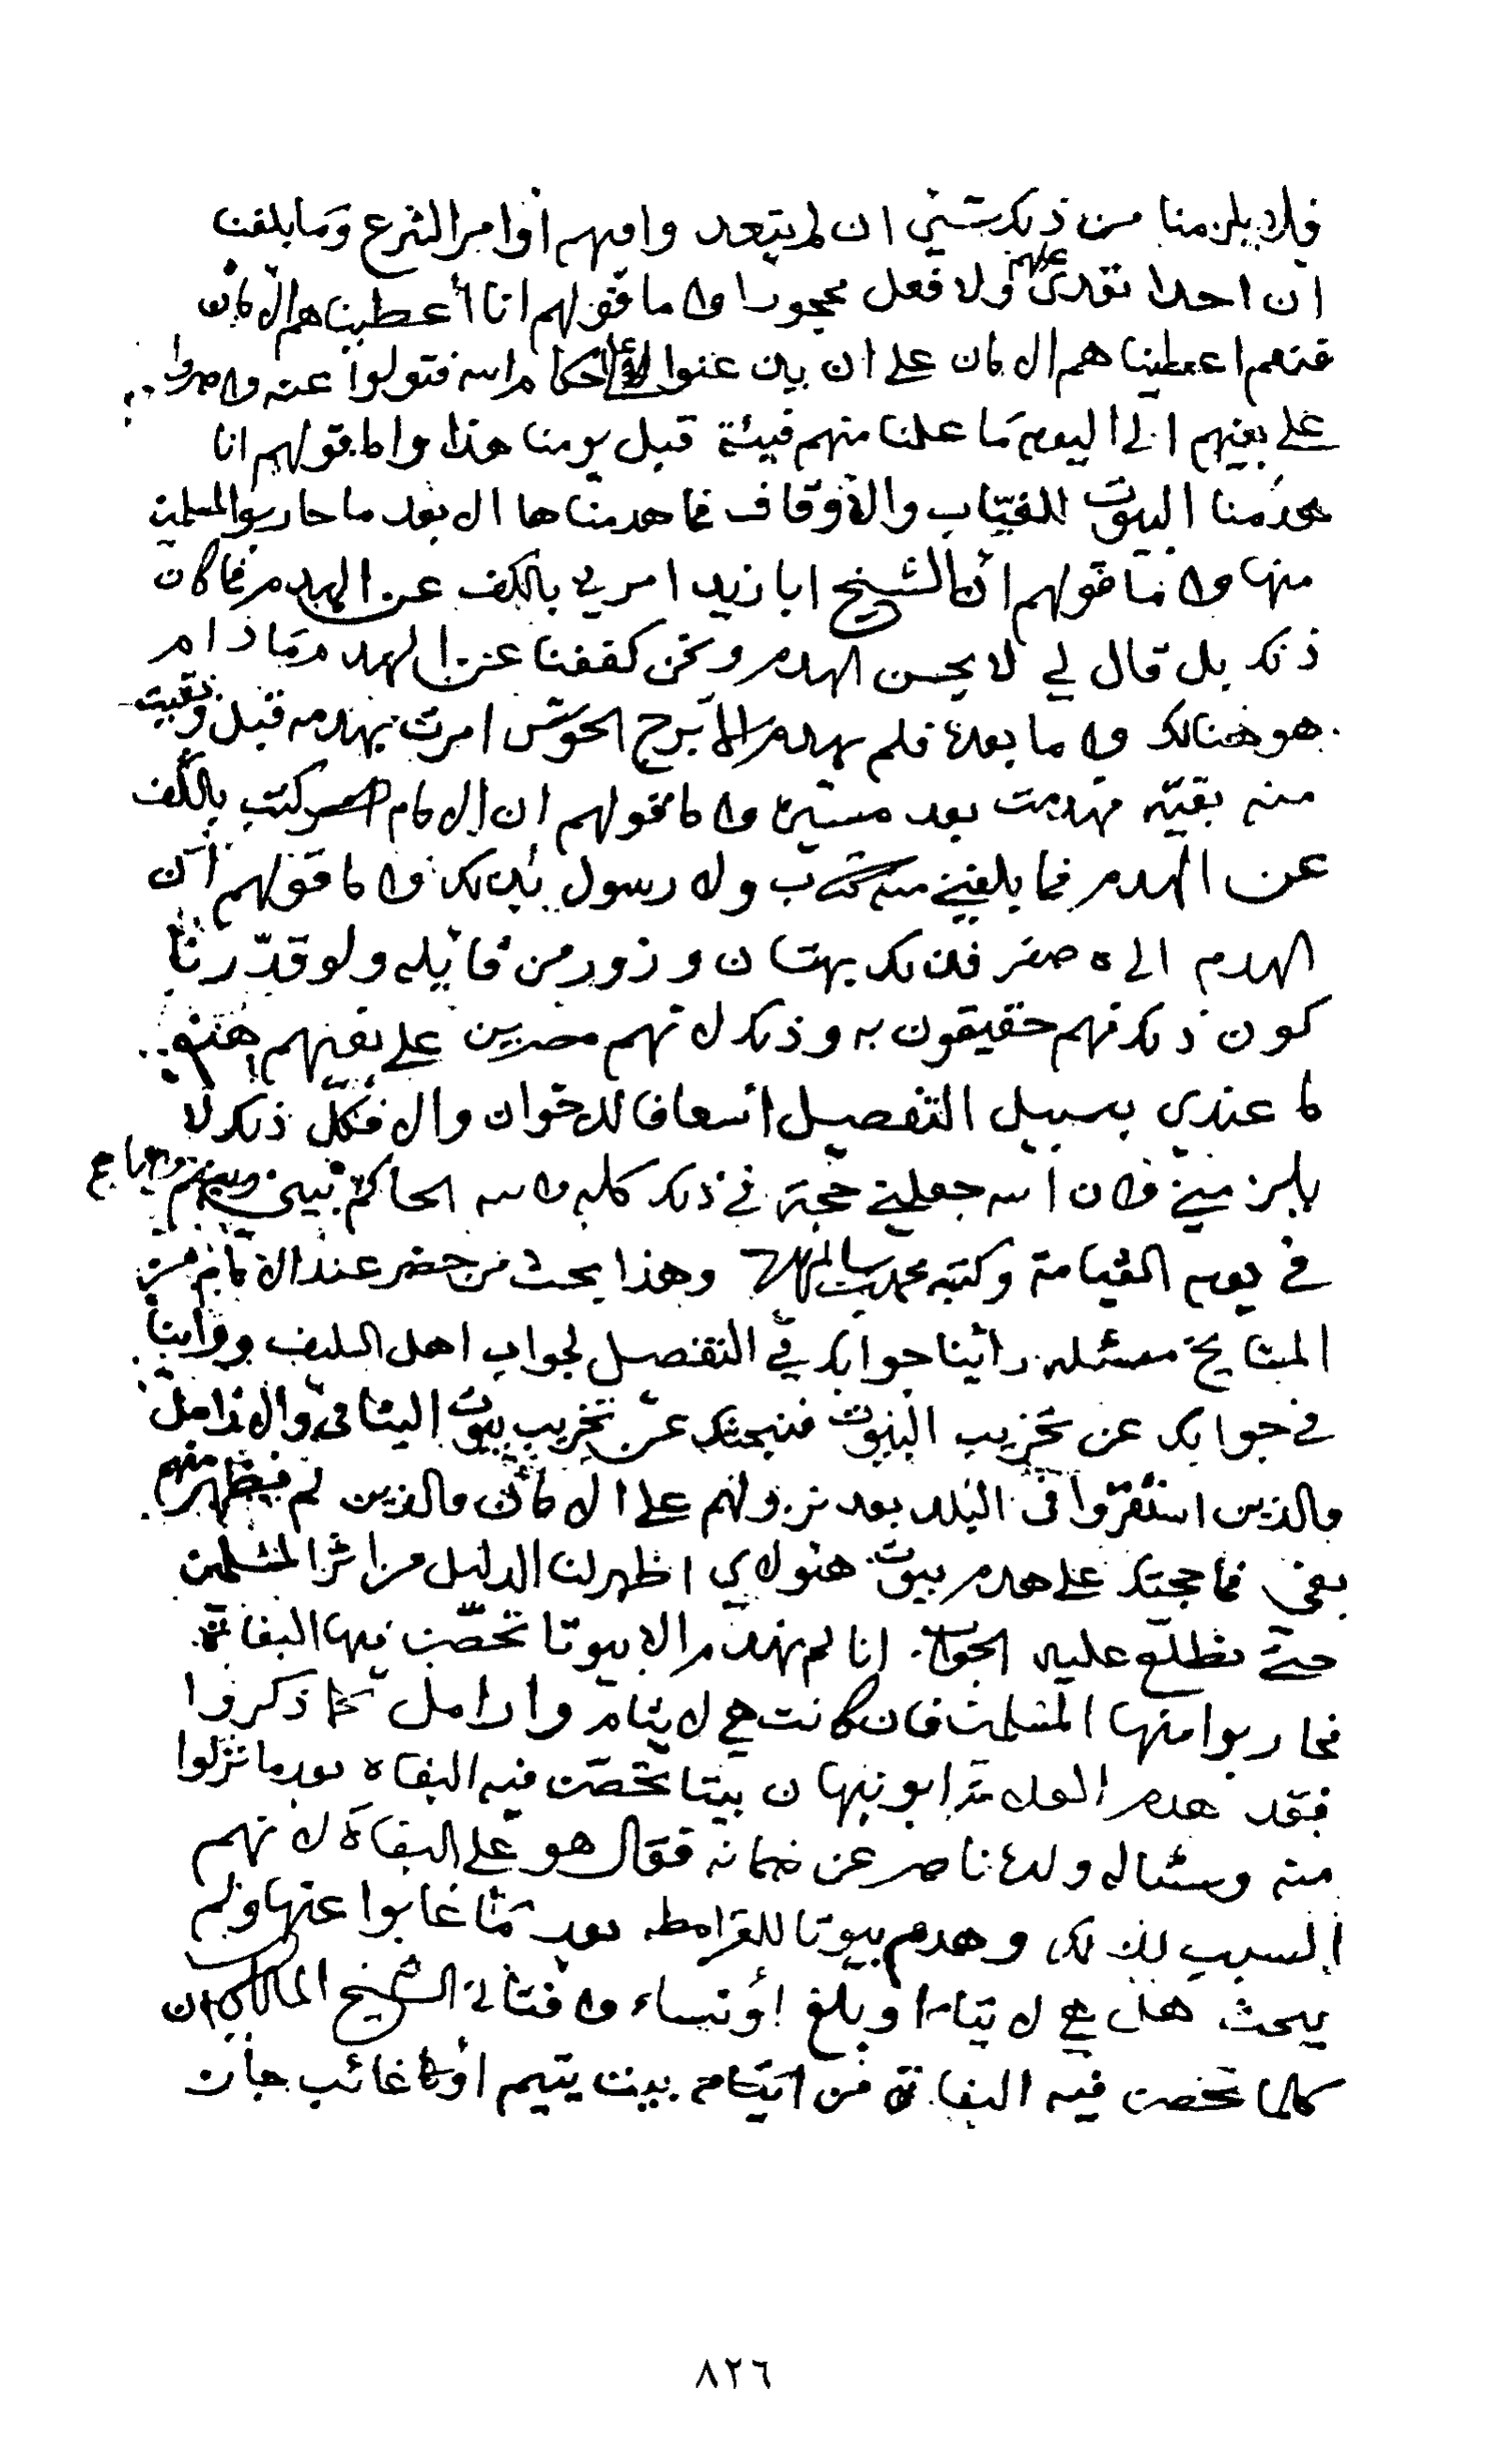 فلا يلزمنا من ذلك شيء ان لم يتعد وافيهم اوامر الشرع وما بلغنا
ان احدا تعدى عليهم ولا فعل محجورا واما قولهم انا أعطيناهم الامان
فنعم اعطيناهم الامان على ان يذعنوا لأحكام الله فتولوا عنه واصروا
على بغيهم الى اليوم ما علمنا منهم فيئة قبل يومنا هذا واما قولهم انا
هدمنا البيوت للغيّاب والأوقاف فما هدمناها الا بعد ما حاربوا المسلمين
منها واما قولهم ان الشيخ ابا زيد امرني بالكف عن الهدم فما كان
ذلك بل قال لي لا يحسن الهدم ونحن كففنا عن الهدم ما دام
هو هنالك واما بعده فلم يهدم الا برج الحوش امرت بهدمه قبل وبقيت
منه بقيّة فهدمت بعد مسيره واما قولهم ان الامام كتب بالكف
عن الهدم فما بلغني منه كتاب ولا رسول بذلك واما قولهم ان
الهدم الى ٥ صفر فذلك بهتان وزور من قائله ولو قدّرنا
كون ذلك فهم حقيقون به وذلك لانهم مصرين على بغيهم هذا
ما عندي بسبيل التفصيل اسعافا للاخوان والا فكل ذلك لا
يلزمني وان الله جعلني حجة في ذلك كله والله الحاكم بيني وبينهم
في يوم القيامة وكتبه محمد بن سالم وهذا بحث من حضر عند الامام من
المشايخ مسئلة رأينا جوابك في التفصيل لجواب اهل السليف ورأينا
في جوابك عن تخريب البيوت فنبحثك عن تخريب بيوت اليتامى والارامل
والذين استقرّوا في البلد بعد نزولهم على الامان والذين لم يظهر منهم
بغي فما حجتك على هدم بيوت هؤلاي اظهر لنا الدليل من اثر المسلمين
حتى نطلع عليه الجواب انا لم نهدم الا بيوتا تحصّن فيها البغاة
فحاربوا منها المسلمين فان كانت هي لايتام وارامل كما ذكروا
فقد هدم العلامة ابو نبهان بيتا تحصّن فيه البغاة بعد ما نزلوا
منه وسئاله ولده ناصر عن ضمانه فقال هو على البغاة لانهم
السبب لذلك وهدم بيوتا للقرامطه بعد ما غابوا عنها ولم
يبحث هل هي لايتام او بلغ او نساء وافتانا الشيخ المالكي ان
كلما تحصن فيه البغاة من بيت يتيم او غائب جاز